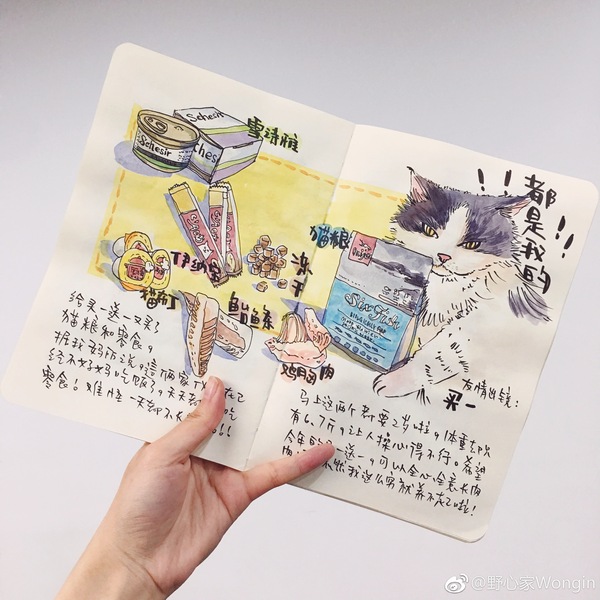 Schesir
Schesir
雪诗雅
伊纳宝
冻干
猫布丁
鱼鱼条
鸡胸肉
给买一送一又买了
猫粮和零食。
据我妈所说。这俩家伙
经不好好吃饭了。天天
零食！难怪一天却不长
!!
都是我的
!!
猫粮
Six Fish
友情出镜：
买一
马上这两个都要2岁啦。体重却只
有6.7斤。让人操心得不行。希望
今年的买一送一。可以全心全意长肉
肉
不然我这么穷就养不起啦！
@野心家Wongin